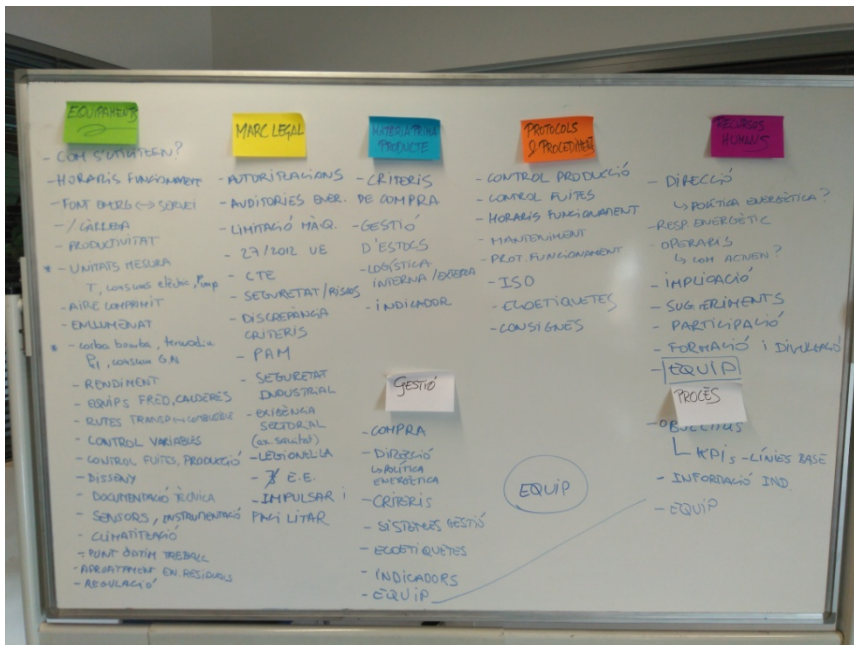 EQUIPAMENTS
- COM S'UTILITZEN?
- HORARIS FUNCIONAMENT
- FONT ENERG <-> SERVEI
- / CÀRREGA
- PRODUCTIVITAT
* - UNITATS MESURA
T, consums elèctric,
- AIRE COMPRIMIT
- ENLLUMENAT
* - corba bomba,
, consum G.N
- RENDIMENT
- EQUIPS FRED, CALDERES
- RUTES TRANSP
- CONTROL VARIABLES
- CONTROL FUITES, PRODUCCIÓ
- DISSENY
- DOCUMENTACIÓ TÈCNICA
- SENSORS, INSTRUMENTACIÓ
- CLIMATITZACIÓ
- PUNT ÒPTIM TREBALL
- APROFITAMENT EN. RESIDUALS
- REGULACIÓ
MARC LEGAL
- AUTORITZACIONS
- AUDITORIES ENER.
- LIMITACIÓ MÀQ.
- 27/2012 UE
- CTE
- SEGURETAT/RISCOS
- DISCREPÀNCIA
CRITERIS
- PAM
- SEGURETAT
INDUSTRIAL
- EXIGÈNCIA
SECTORIAL
(ex. sanitat)
- LEGIONEL·LA
- E.E.
- IMPULSAR i
FACILITAR
MATÈRIA PRIMA
PRODUCTE
- CRITERIS
DE COMPRA
- GESTIÓ
D'ESTOCS
- LOGÍSTICA
INTERNA/EXTERNA
- INDICADOR
GESTIÓ
- COMPRA
- DIRECCIÓ
↳ POLÍTICA
ENERGÈTICA
- CRITERIS
- SISTEMES GESTIÓ
- ECOETIQUETES
- INDICADORS
- EQUIP
PROTOCOLS
& PROCEDIMENT
- CONTROL PRODUCCIÓ
- CONTROL FUITES
- HORARIS FUNCIONAMENT
- MANTENIMENT
- PROT FUNCIONAMENT
- ISO
- ECOETIQUETES
- CONSIGNES
EQUIP
RECURSOS
HUMANS
- DIRECCIÓ
↳ POLÍTICA ENERGÈTICA?
- RESP. ENERGÈTIC
- OPERARIS
↳ COM ACTUEN?
- IMPLICACIÓ
- SUGGERIMENTS
- PARTICIPACIÓ
- FORMACIÓ i DIVULGACIÓ
- EQUIP
PROCÉS
- OBJECTIUS
KPIs - LÍNIES BASE
- INFORMACIÓ IND.
- EQUIP